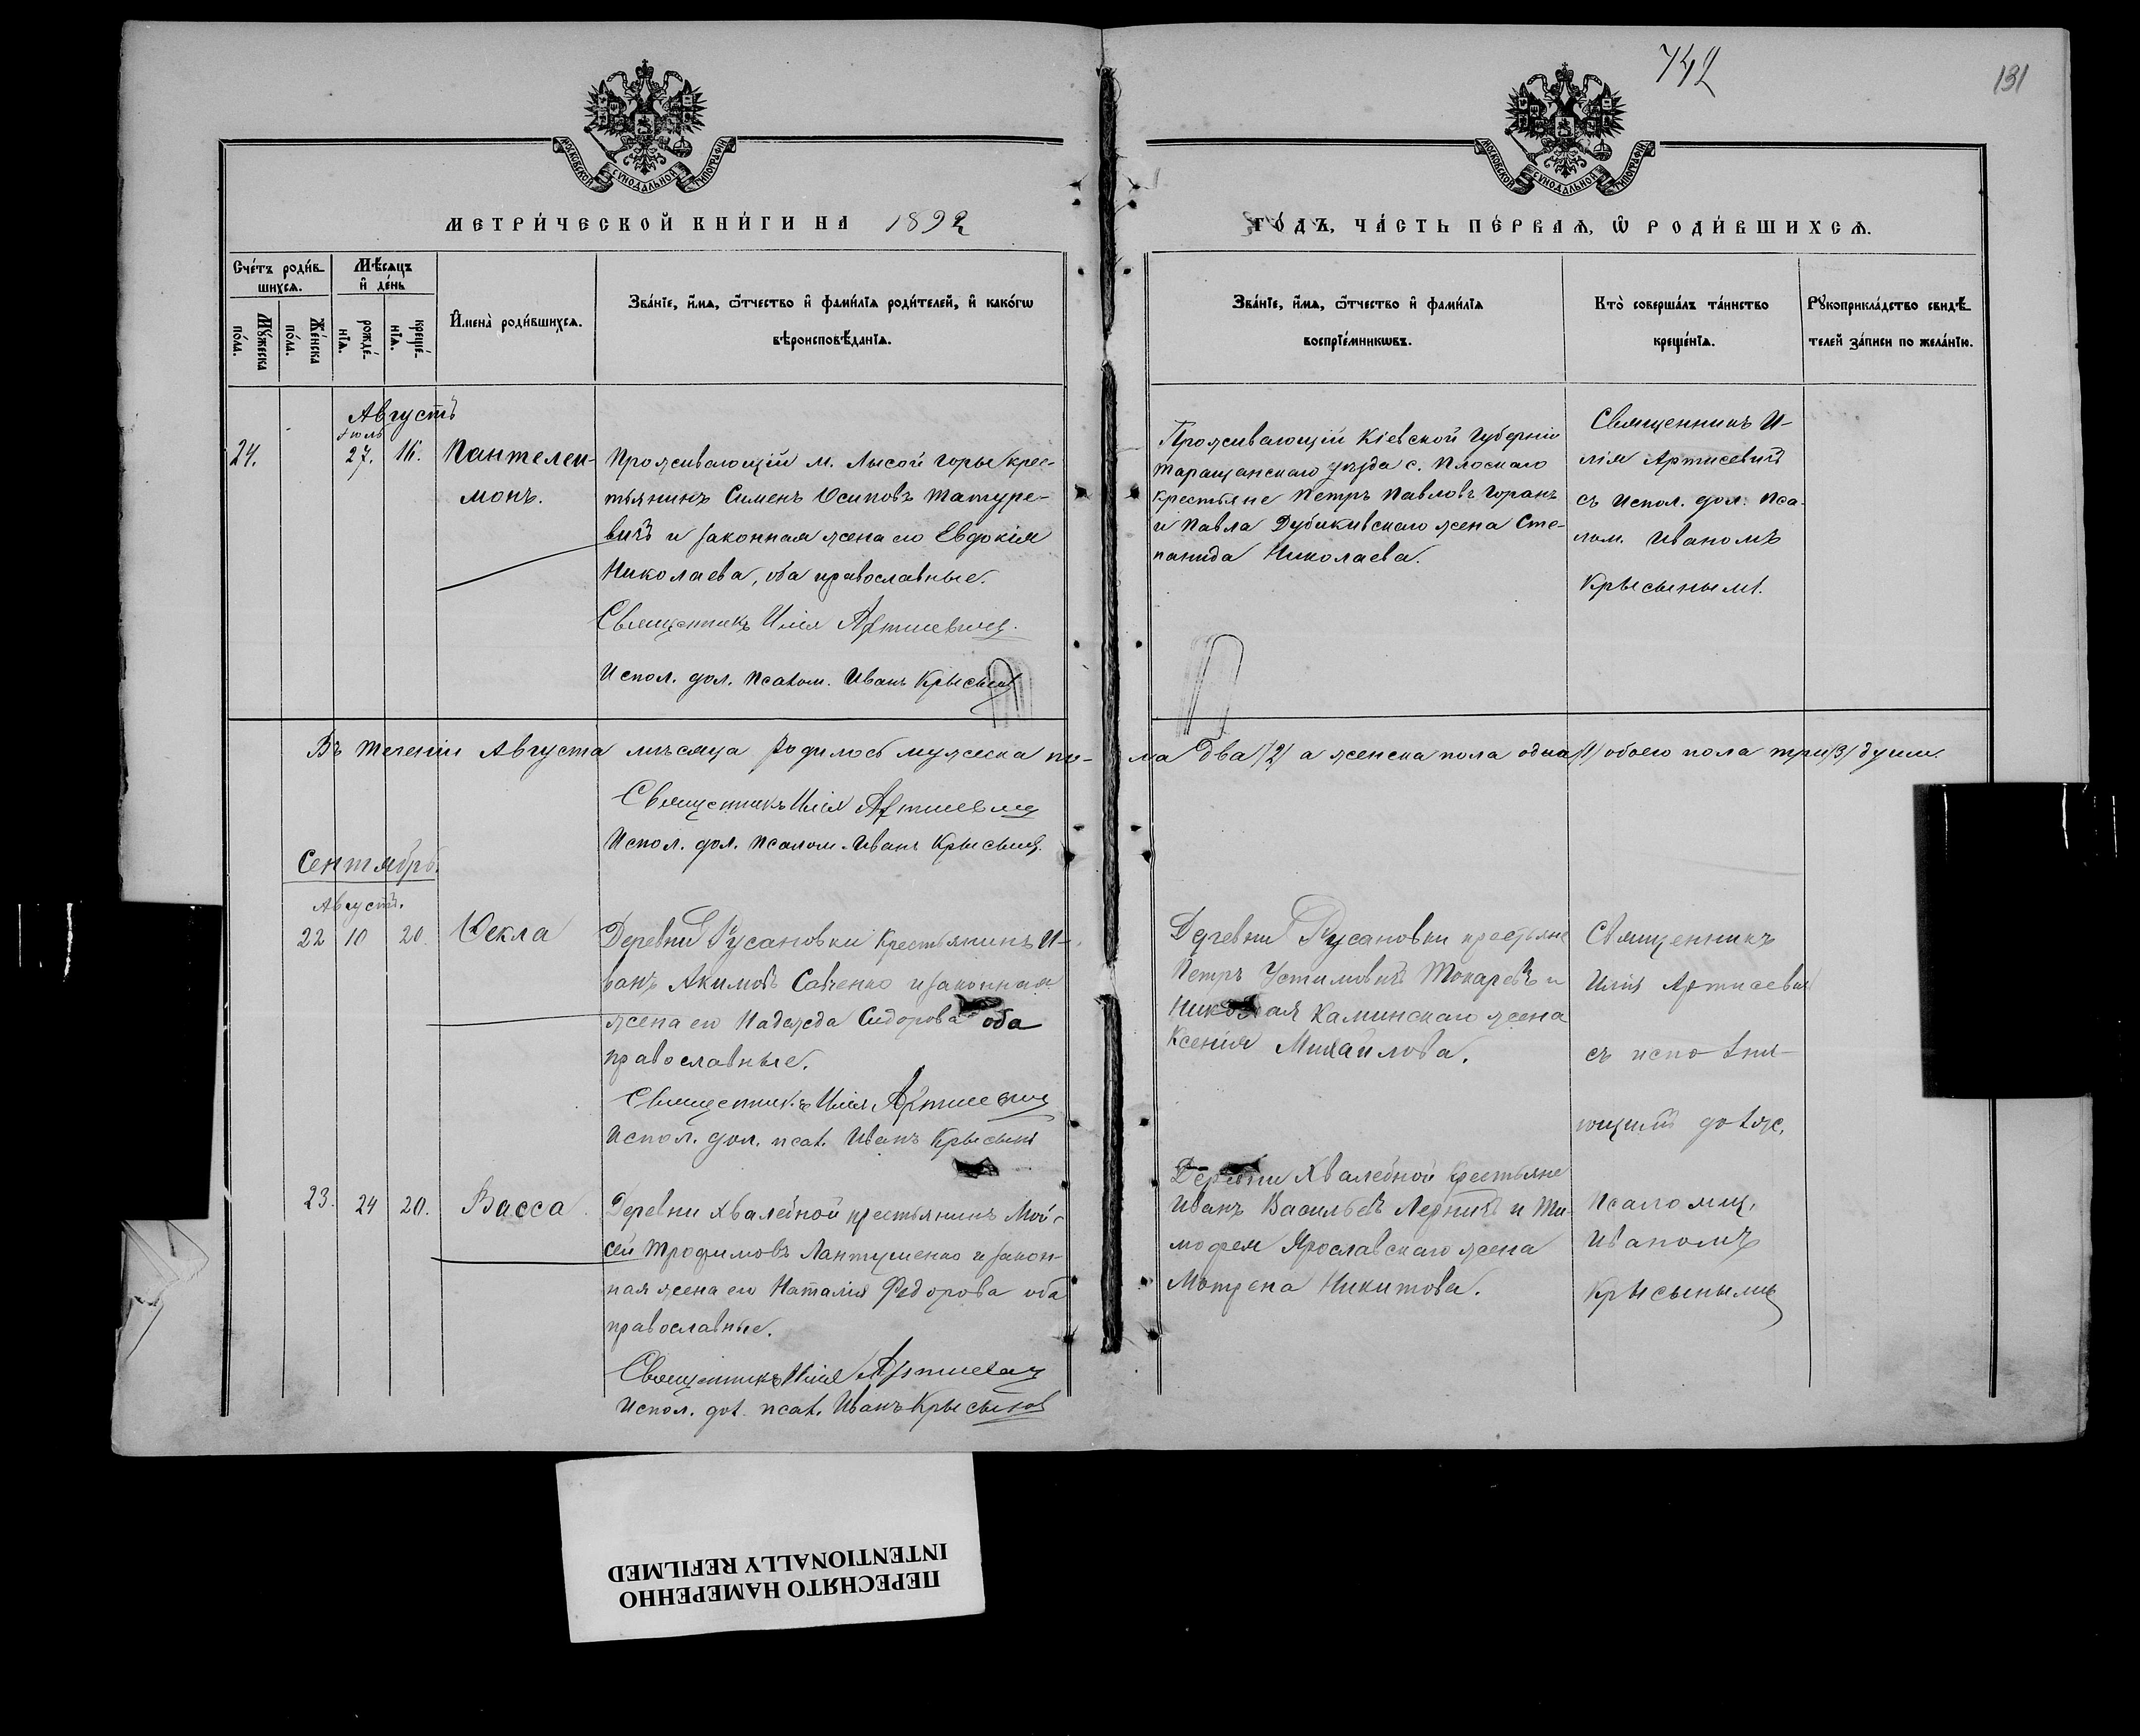 742
131
МОСКОВСКОЙ СУНОДАЛЬНОЙ ТИПОГРАФІИ
МОСКОВСКОЙ СУНОДАЛЬНОЙ ТИПОГРАФІИ
МЕТРИ́ЧЕСКОЙ КНИ́ГИ НА 1892
ГО́ДЪ, ЧА́СТЬ ПЕ́РВАѦ, Ѡ҆ РОДИ́ВШИХСѦ.
Сче́тъ роди́вшихсѧ.
Мꙋ́жеска по́ла.
Же́нска по́ла.
Мѣ́сѧцъ и҆ де́нь
рожде́нїѧ.
креще́нїѧ.
И҆мена̀ роди́вшихсѧ.
Зва́нїе, и҆́мѧ, ѻ҆́тчество и҆ фами́лїѧ роди́телей, и҆ како́гѡ
вѣроисповѣ́данїѧ.
Зва́нїе, и҆́мѧ, ѻ҆́тчество и҆ фами́лїѧ
воспрїе́мникѡвъ.
Кто̀ соверша́лъ та́инство
креще́нїѧ.
Рꙋкоприкла́дство свидѣ́телей за́писи по жела́нїю.
Августъ
Іюль
24. 27. 16. Пантелеи-
монъ.
Проживающій м. Лысой горы крес-
тьянинъ Сименъ Осиповъ Татуре-
вичъ и законная жена его Евдокія
Николаева, оба православные.
Священникъ Илія Артисевичъ.
Испол. дол. псалом. Иванъ Крысинъ
Проживающій Кіевской Губерніи
Таращанскаго уѣзда с. Плоскаго
крестьяне Петръ Павловъ Горанъ
и Павла Дубикивскаго жена Сте-
панида Николаева.
Священникъ И-
лія Артисевичъ
съ Испол. дол. Пса-
лом. Иваномъ
Крысинымъ.
Въ теченіи Августа мѣсяца родилось мужеска по-
ла два /2/ а женска пола одна /1/ обоего пола три /3/ души.
Священникъ Илія Артисевичъ
Испол. дол. Псалом. Иванъ Крысинъ.
Сентябрь.
Августъ.
22 10 20. Ѳекла
Деревни Русановки крестьянинъ И-
ванъ Акимовъ Савченко и законная
жена его Надежда Сидорова оба
православные.
Священникъ Илія Артисевичъ
Испол. дол. псал. Иванъ Крысинъ
Деревни Русановки крестьяне
Петръ Устимовичъ Токаревъ и
Николая Каминскаго жена
Ксенія Михайлова.
Священникъ
Илія Артисевичъ
съ исполня-
ющимъ долж.
Псаломщ.
Иваномъ
Крысинымъ
23. 24 20. Васса.
Деревни Хвалебной крестьянинъ Мой-
сей Трофимовъ Лантушенко и закон-
ная жена его Наталія Федорова оба
православные.
Священникъ Илія Артисевичъ
Испол. дол. псал. Иванъ Крысинъ
Деревни Хвалебной крестьяне
Иванъ Васильевъ Ледничъ и Ти-
мофея Ярославскаго жена
Мотрена Никитова.
ПЕРЕСНЯТО НАМЕРЕННО
INTENTIONALLY REFILMED